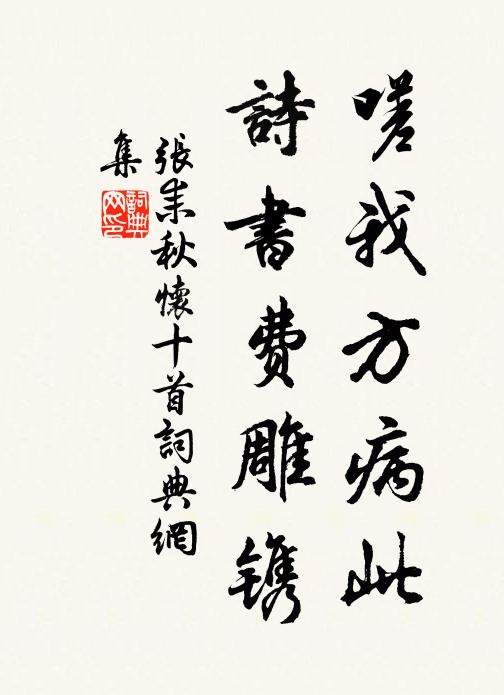 嗟我方病此
詩書費雕鐫
張耒秋懷十首詞典網
集
詞典網印